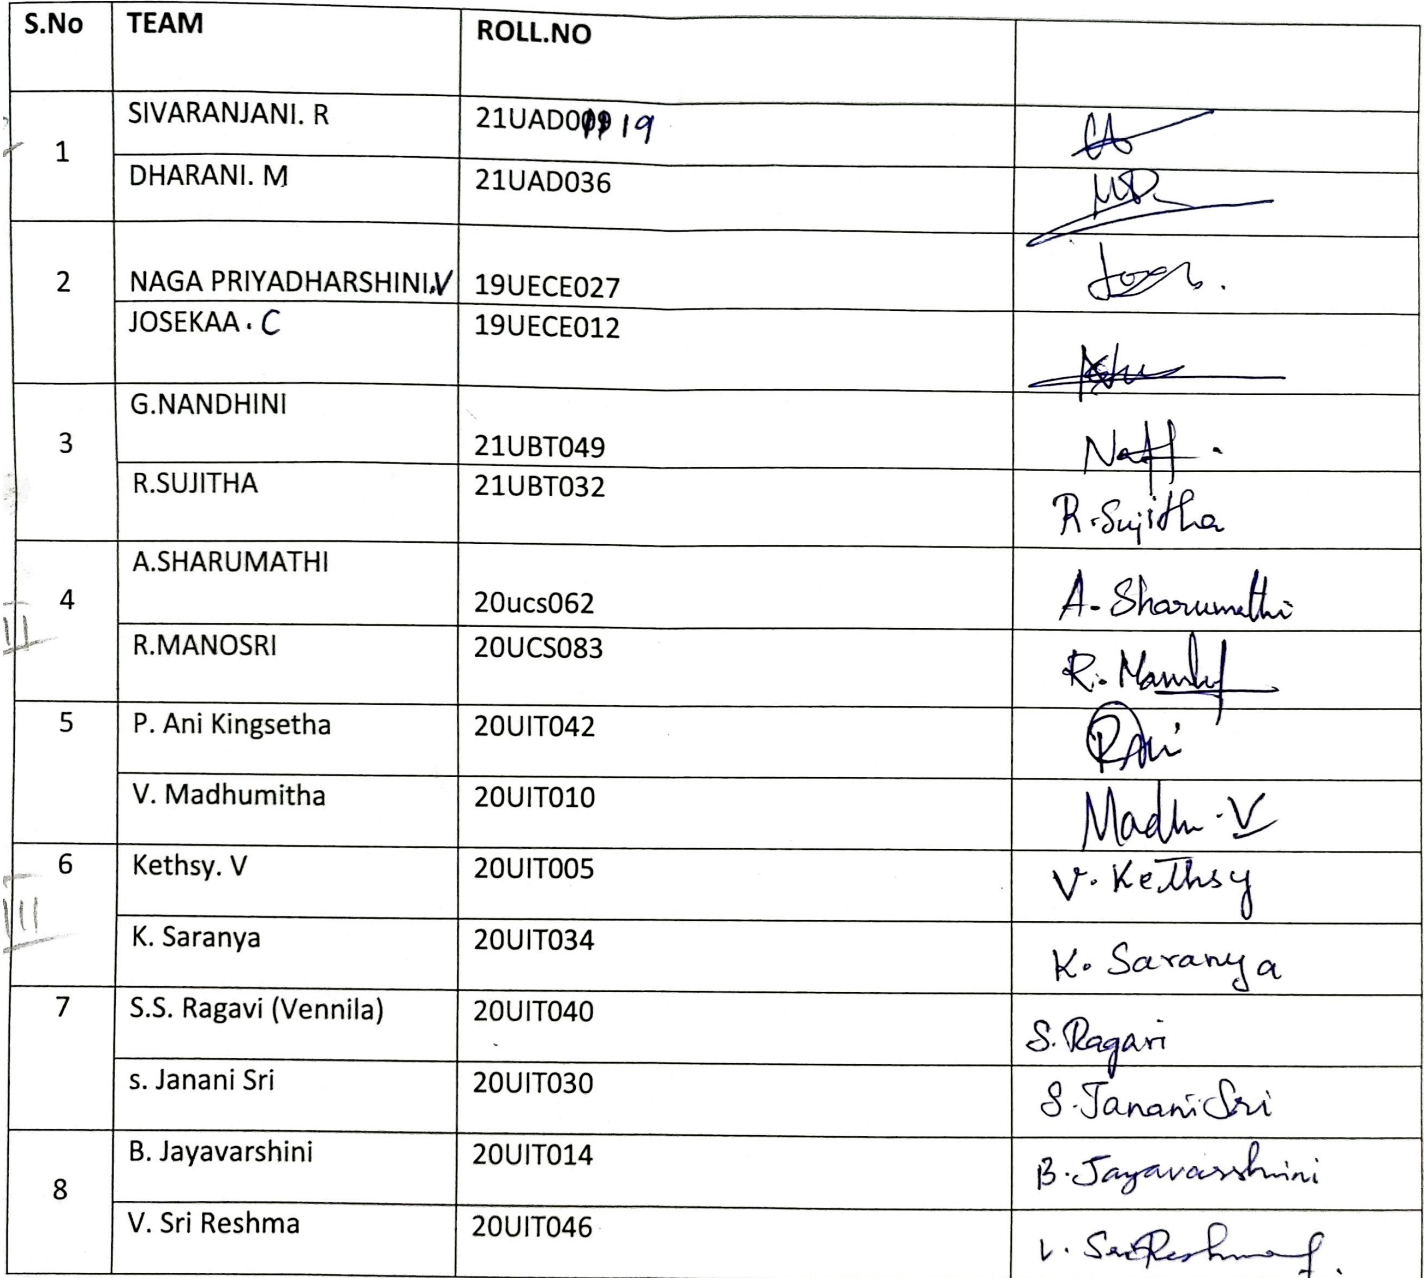 S.No TEAM ROLL.NO
SIVARANJANI. R 21UAD0 19
1
DHARANI. M 21UAD036
2 NAGA PRIYADHARSHINI.V 19UECE027
JOSEKAA. C 19UECE012
G.NANDHINI
3 21UBT049
R.SUJITHA 21UBT032 R.Sujitha
A.SHARUMATHI
4 20ucs062 A. Sharumathi
II
R.MANOSRI 20UCS083 R.
5 P. Ani Kingsetha 20UIT042
V. Madhumitha 20UIT010 Madhu.V
6 Kethsy. V 20UIT005 V. Kethsy
K. Saranya 20UIT034 K. Saranya
7 S.S. Ragavi (Vennila) 20UIT040 S. Ragavi
s. Janani Sri 20UIT030 S. Janani Sri
B. Jayavarshini 20UIT014 B. Jayavarshini
8
V. Sri Reshma 20UIT046 V. Sri Reshma